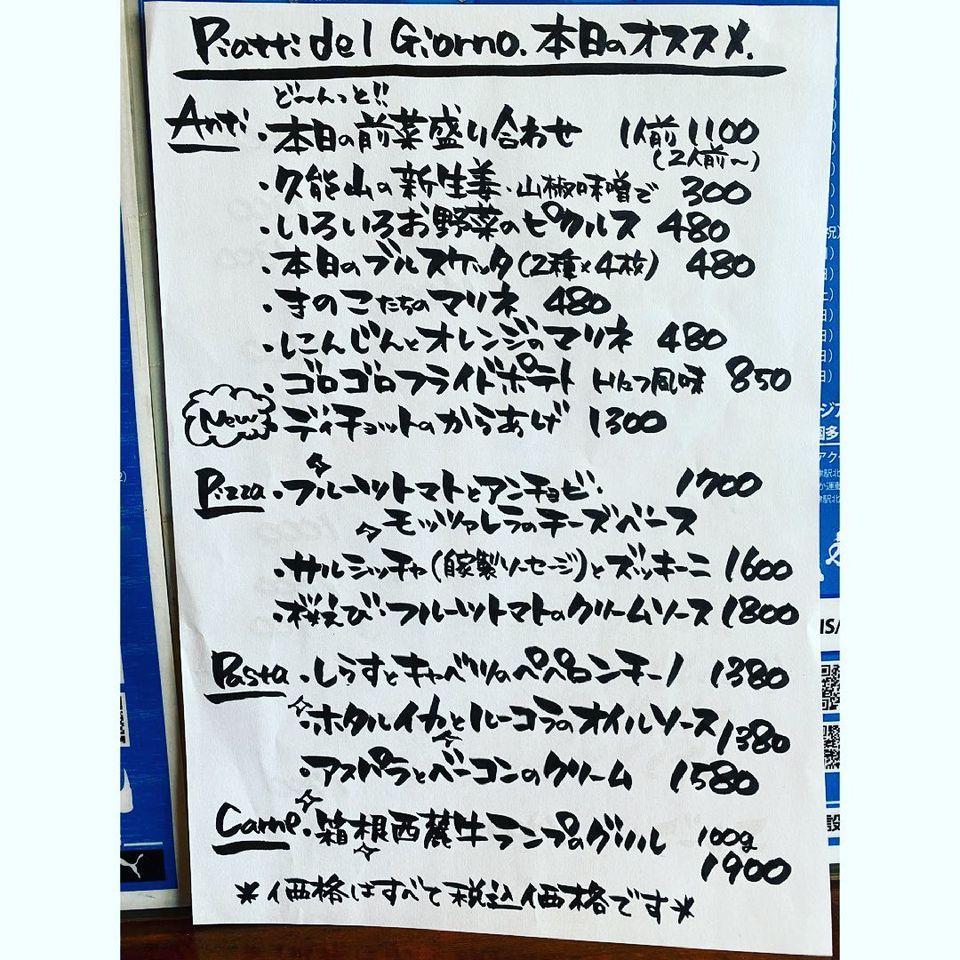 Piatti del Giorno. 本日のオススメ.
ど〜んっと!!
Anti ・本日の前菜盛り合わせ 1人前 1100
(2人前〜)
・久能山の新生姜・山椒味噌で 300
・いろいろお野菜のピクルス 480
・本日のブルスケッタ(2種×4枚) 480
・きのこたちのマリネ 480
・にんじんとオレンジのマリネ 480
・ゴロゴロフライドポテト トリュフ風味 850
New ・ディチョットのからあげ 1300
Pizza ・フルーツトマトとアンチョビ・ 1700
モッツァレラのチーズベース
・サルシッチャ(自家製ソーセージ)とズッキーニ 1600
・桜えび・フルーツトマトのクリームソース 1800
Pasta ・しらすとキャベツのペペロンチーノ 1380
・ホタルイカとルーコラのオイルソース 1380
・アスパラとベーコンのクリーム 1580
Carne ・箱根西麓牛ランプのグリル 100g
1900
*価格はすべて税込価格です*